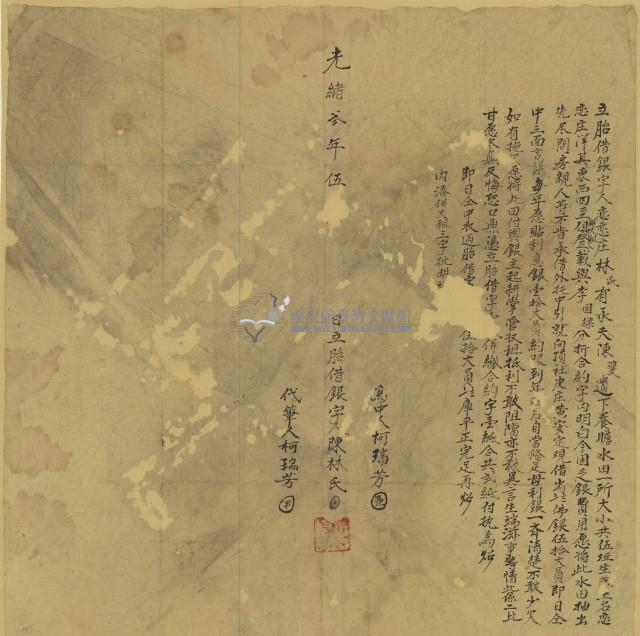 立胎借銀字人戀戀庄林氏有承夫陳 遺下養贍水田一所大小共伍坵坐 土名戀
戀庄洋其東西四至 登載與李 分折合約字內明白今因乏銀費用愿將此水田抽出
先尽問房親人等不肯承借外托中引就向頂社皮庄黃安定觀借出 佛銀伍拾大員即日仝
中三面言議每年愿貼利息銀壹拾大員約 到年 自當條足母利銀一齊清楚不敢少欠
如有拖 愿將此田付與銀主起耕掌管收租抵利不敢阻隔亦不敢異言生端滋事 情此係二比
甘愿各無反悔恐口無憑立胎借字 併繳合約字壹紙合共弍紙付執為炤
即日仝中收過胎借字 伍拾大員 庫平正完足再炤
內添 大租三字批明
為中人柯瑞芳
代筆人柯瑞芳
光緒弍年伍 日立胎借銀字人陳林氏
國立臺灣文獻館